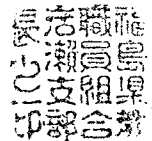 福島県教
職員組合
岩瀬支部
長之印